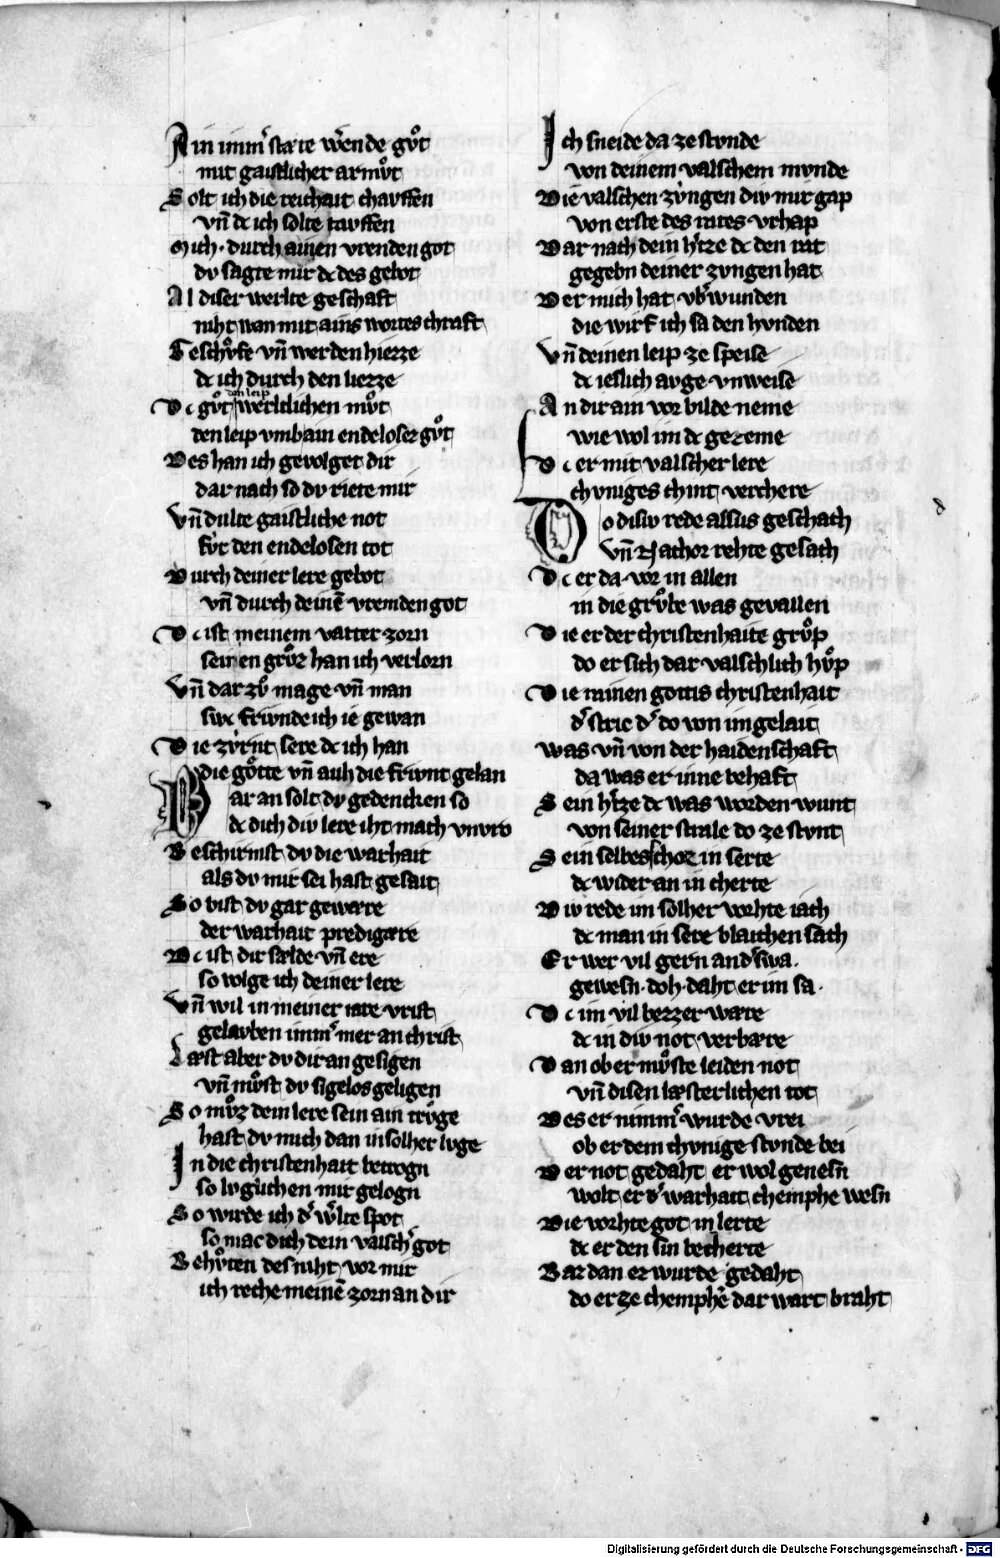 Ain immˀ stæte wˀende gvͦt
mit gaistlicher armvͦt
Solt ich die reichait chavffen
vn̄ dc ich solte tavffen
Mich · durch ainen vrenden got
dv sagte mir dc des gebot
Al diser werlte geschaft
niht wan mit ains wortes chraft
Beschvͦfe vn̄ werden hiezze
dc ich durch den liezze
Dc gvͦt den leip werltlichen mvͦt
den leip vmb ain endelosez gvͦt
Des han ich gevolget dir
dar nach so dv riete mir
Vn̄ dulte gaistliche not
fvr den endelosen tot
Durch deiner lere gebot
vn̄ durch deinē vremden got
Dc ist meinem vatter zorn
seinen grvͦz han ich verlorn
Vn̄ dar zvͦ mage vn̄ man
swx friwnde ich ie gewan
Die zvrnt sere dc ich han
die goͤtte vn̄ auh die friwnt gelan
Dar an solt dv gedencken so
dc dich div lere iht mach vnvro
Beschirmst dv die warhait
als dv mir sei hast gesait
So bist dv gar gewære
der warhait predigære
Dc ist dir sælde vn̄ ere
so volge ich deiner lere
Vn̄ wil in meiner iare vrist
gelavben immˀ mer an christ
Læst aber dv dir an gesigen
vn̄ mvͦst dv sigelos geligen
So mvͦz dein lere sein ain trvͦge
hast dv mich dan in solher lvge
In die christenhait betrogn
so lvglichen mir gelogn
So wirde ich dˀ wˀlte spot
so mac dich dein valschˀ got
Behvͦten des niht vor mir
ich reche meinē zorn an dir
Ich sneide da ze stvnde
von deinem valschem mvnde
Die valschen zvngen div mir gap
von erste des rates vrhap
Dar nach dein hˀtze dc den rat
gegebn deiner zvngen hat
Der mich hat vbˀwunden
die wirf ich sa den hvnden
Vn̄ deinen leip ze speise
dc ieslich avge vnweise
An dir ain vor bilde neme
wie wol im dc gezeme
Dc er mit valscher lere
chvniges chint verchere
Do disiv rede alsus geschach
vn̄ Nachor rehte gesach
Dc er da vor in allen
in die grvͦbe was gevallen
Die er der christenhaite grvͦp
do er sich dar valschlich hvͦp
Die rainen gottis christenhait
dˀ stric dˀ do von im gelait
was vn̄ von der haidenschaft
da was er inne behaft
Sein hˀtze dc was worden wunt
von seiner strale do ze stvnt
Sein selbes schoz in serte
dc wider an in cherte
Div rede im solher vorhte iach
dc man in sere blaichen sach
Er wer vil gern andˀswa ·
gewesn · doh daht er im sa ·
Dc im vil bezzer wære
dc in div not verbære
Dan ob er mvͦste leiden not
vn̄ disen læsterlichen tot
Des er nimmˀ wurde vrei
ob er dem chvnige stvnde bei
Der not gedaht er wol genesn
wolt er dˀ warhait chemphe wesn
Die vorhte got in lerte
dc er den sin becherte
Bar dan er wurde gedaht
do er ze chemphē dar wart braht
Digitalisierung gefördert durch die Deutsche Forschungsgemeinschaft - DFG